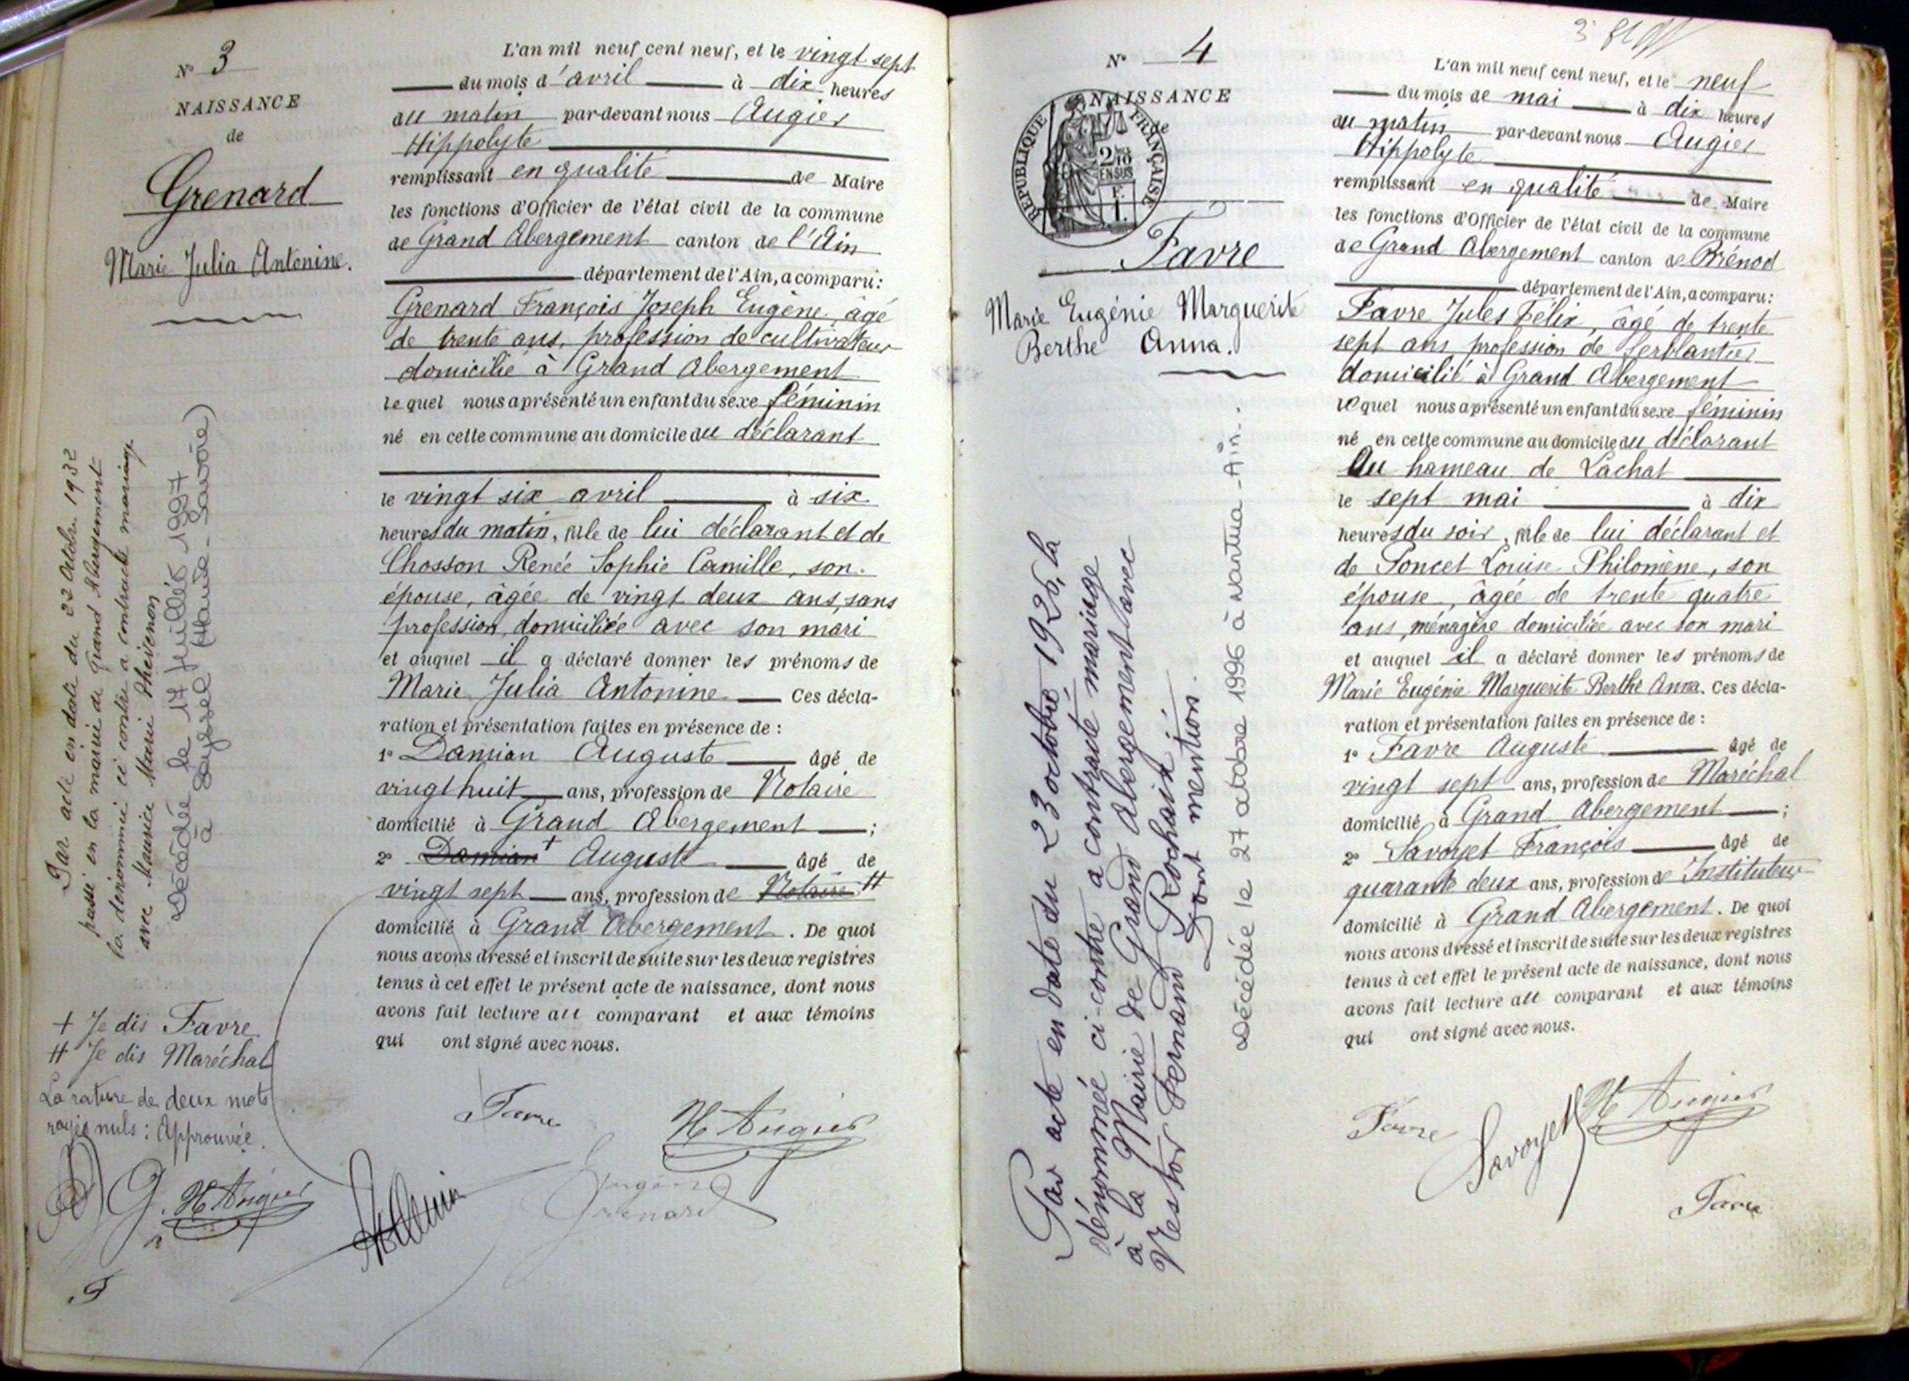 N° 3
NAISSANCE
de
Grenard
Marie Julia Antonine.
Par acte en date du 22 Octobre 1932
passé en la mairie de Grand Abergement
la dénommée ci contre a contracté mariage
avec Maurice Marie Thévenon
Décédée le 17 Juillet 1997
à Seyssel (Haute-Savoie)
+ Je dis Favre
++ Je dis Maréchal
La rature de deux mots
rayés nuls : Approuvée.
H Augier
L'an mil neuf cent neuf, et le vingt sept
du mois d'avril à dix heures
du matin par-devant nous Augier
Hippolyte
remplissant en qualité de Maire
les fonctions d'Officier de l'état civil de la commune
de Grand Abergement canton de l'Ain
département de l'Ain, a comparu:
Grenard François Joseph Eugène, âgé
de trente ans, profession de cultivateur
domicilié à Grand Abergement
lequel nous a présenté un enfant du sexe féminin
né en cette commune au domicile du déclarant
le vingt six avril à six
heures du matin, fille de lui déclarant et de
Chosson Renée Sophie Camille, son
épouse, âgée de vingt deux ans, sans
profession, domiciliée avec son mari
et auquel il a déclaré donner les prénoms de
Marie Julia Antonine Ces décla-
ration et présentation faites en présence de :
1° Damian Auguste âgé de
vingt huit ans, profession de Notaire
domicilié à Grand Abergement ;
2° Damian + Auguste âgé de
vingt sept ans, profession de Notaire ++
domicilié à Grand Abergement. De quoi
nous avons dressé et inscrit de suite sur les deux registres
tenus à cet effet le présent acte de naissance, dont nous
avons fait lecture au comparant et aux témoins
qui ont signé avec nous.
Favre
H Augier
Eugène
Grenard
N° 4
NAISSANCE
de
REPUBLIQUE FRANÇAISE
2/10
EN SUS
F.
1.
Favre
Marie Eugénie Marguerite
Berthe Anna.
Par acte en date du 23 octobre 1926, la
dénommée ci-contre a contracté mariage
à la Mairie de Grand Abergement avec
Nestor Fernand Rochaix.
Dont mention.
Décédée le 27 octobre 1996 à Nantua - Ain.
L'an mil neuf cent neuf, et le neuf
du mois de mai à dix heures
du matin par-devant nous Augier
Hippolyte
remplissant en qualité de Maire
les fonctions d'Officier de l'état civil de la commune
de Grand Abergement canton de Brénod
département de l'Ain, a comparu:
Favre Jules Félix, âgé de trente
sept ans profession de ferblantier
domicilié à Grand Abergement
lequel nous a présenté un enfant du sexe féminin
né en cette commune au domicile du déclarant
Au hameau de Lachat
le sept mai à dix
heures du soir, fille de lui déclarant et
de Poncet Louise Philomène, son
épouse, âgée de trente quatre
ans, ménagère domiciliée avec son mari
et auquel il a déclaré donner les prénoms de
Marie Eugénie Marguerite Berthe Anna. Ces décla-
ration et présentation faites en présence de :
1° Favre Auguste âgé de
vingt sept ans, profession de Maréchal
domicilié à Grand Abergement ;
2° Savoyet François âgé de
quarante deux ans, profession de Instituteur
domicilié à Grand Abergement. De quoi
nous avons dressé et inscrit de suite sur les deux registres
tenus à cet effet le présent acte de naissance, dont nous
avons fait lecture au comparant et aux témoins
qui ont signé avec nous.
Favre
Savoyet
H Augier
Favre